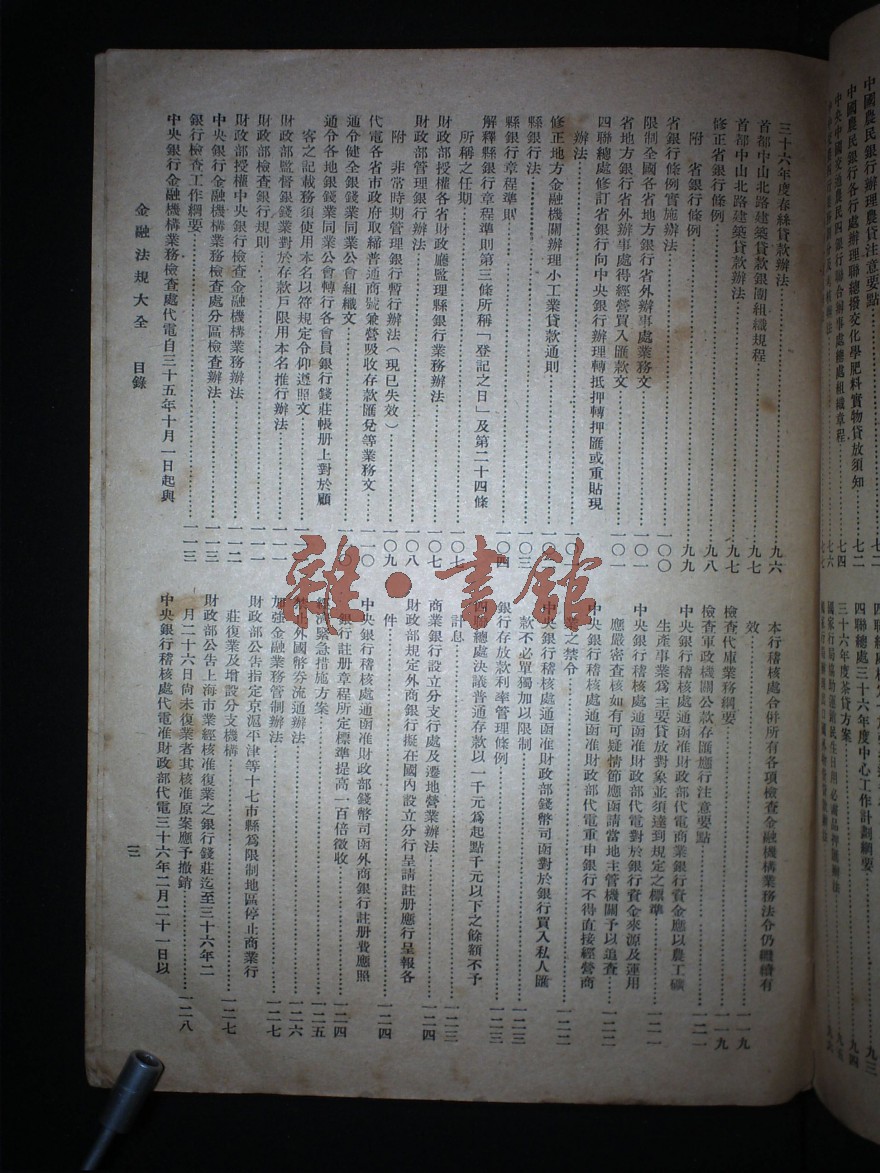 中國農民銀行辦理農貸注意要點
中國農民銀行各行處辦理聯總撥交化學肥料實物貸放須知
七二
中央中國交通農民四銀行聯合辦事處總處組織章程
七四
七六
七七
九三
四聯總處三十六年度中心工作計劃綱要
九四
三十六年度茶貸方案
三十六年度春絲貸款辦法
九六
首都中山北路建築貸款銀團組織規程
九七
首都中山北路建築貸款辦法
九七
修正省銀行條例
九八
附 省銀行條例
九九
省銀行條例實施辦法
一〇〇
限制全國各省地方銀行省外辦事處業務文
一〇一
省地方銀行省外辦事處得經營買入匯款文
一〇一
四聯總處修訂省銀行向中央銀行辦理轉抵押轉押匯或重貼現
辦法
修正地方金融機關辦理小工業貸款通則
縣銀行法
一〇三
縣銀行章程準則
一〇四
解釋縣銀行章程準則第三條所稱「登記之日」及第二十四條
所稱之任期
一〇七
財政部授權各省財政廳監理縣銀行業務辦法
一〇七
財政部管理銀行辦法
一〇八
附 非常時期管理銀行暫行辦法（現已失效）
一〇九
代電各省市政府取締普通商號兼營吸收存款匯兌等業務文
一一〇
通令健全銀錢業同業公會組織文
通令各地銀錢業同業公會轉行各會員銀行錢莊帳册上對於顧
客之記載務須使用本名以符規定令仰遵照文
財政部監督銀錢業對於存款戶限用本名推行辦法
一一一
財政部檢查銀行規則
一一一
財政部授權中央銀行檢查金融機構業務辦法
一一二
中央銀行金融機構業務檢查處分區檢查辦法
一一三
銀行檢查工作綱要
一一三
中央銀行金融機構業務檢查處代電自三十五年十月一日起與
本行稽核處合併所有各項檢查金融機構業務法令仍繼續有
效
一一九
檢查代庫業務綱要
一一九
檢查軍政機關公款存匯應行注意要點
一二一
中央銀行稽核處通函准財政部代電商業銀行資金應以農工礦
生產事業爲主要貸放對象並須達到規定之標準
一二一
中央銀行稽核處通函准財政部代電對於銀行資金來源及運用
應嚴密查核如有可疑情節應函請當地主管機關予以追查
一二二
中央銀行稽核處通函准財政部代電重申銀行不得直接經營商
業之禁令
一二二
中央銀行稽核處通函准財政部錢幣司函對於銀行買入私人匯
款不必單獨加以限制
一二三
銀行存放款利率管理條例
一二三
四聯總處決議普通存款以一千元爲起點千元以下之餘額不予
計息
一二三
商業銀行設立分支行處及遷地營業辦法
一二四
財政部規定外商銀行擬在國內設立分行呈請註册應行呈報各
件
一二四
中央銀行稽核處通函准財政部錢幣司函外商銀行註册費應照
銀行註册章程所定標準提高一百倍徵收
一二四
經濟緊急措施方案
一二五
禁止外國幣券流通辦法
一二六
加強金融業務管制辦法
一二七
財政部公告指定京滬平津等十七市縣爲限制地區停止商業行
莊復業及增設分支機構
一二七
財政部公告上海市業經核准復業之銀行錢莊迄至三十六年二
月二十六日尚未復業者其核准原案應予撤銷
一二八
中央銀行稽核處代電准財政部代電三十六年二月二十一日以
金融法規大全 目錄
三
雜·書館